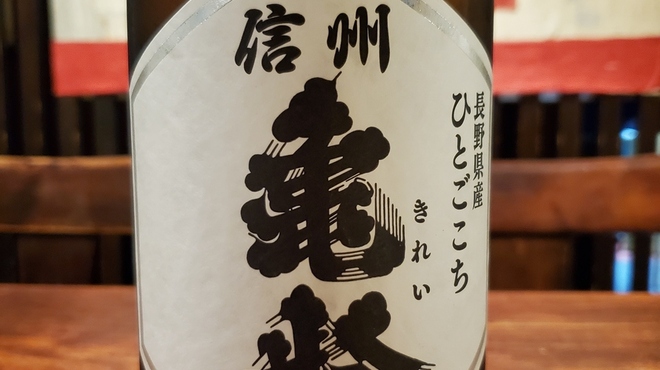 信州
長野県産
ひとごこち
きれい
亀